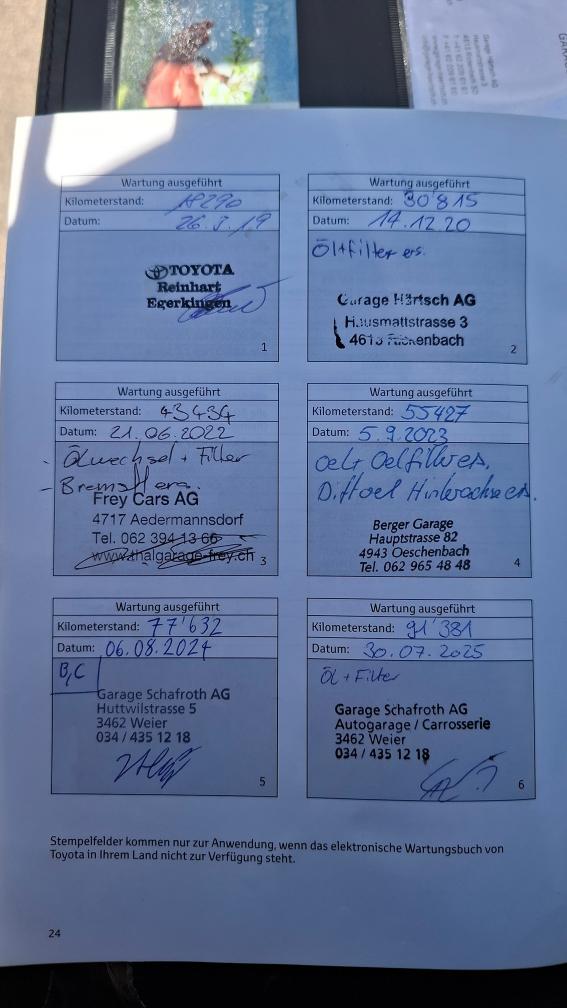 Wartung ausgeführt
Kilometerstand: 18290
Datum: 26.3.19
TOYOTA
Reinhart
Egerkingen
1
Wartung ausgeführt
Kilometerstand: 30'815
Datum: 14.12.20
Öl+filter ers.
Garage Härtsch AG
Hausmattstrasse 3
4613 Rickenbach
2
Wartung ausgeführt
Kilometerstand: 43434
Datum: 21.06.2022
- Ölwechsel + Filter
- Bremsfl ers.
Frey Cars AG
4717 Aedermannsdorf
Tel. 062 394 13 66
www.thalgarage-frey.ch
3
Wartung ausgeführt
Kilometerstand: 55427
Datum: 5.9.2023
Oel+ Oelfilter es.
Diffoel Hinterachse ers.
Berger Garage
Hauptstrasse 82
4943 Oeschenbach
Tel. 062 965 48 48
4
Wartung ausgeführt
Kilometerstand: 77'632
Datum: 06.08.2024
B,C
Garage Schafroth AG
Huttwilstrasse 5
3462 Weier
034 / 435 12 18
5
Wartung ausgeführt
Kilometerstand: 91'381
Datum: 30.07.2025
Öl + Filter
Garage Schafroth AG
Autogarage / Carrosserie
3462 Weier
034 / 435 12 18
6
Stempelfelder kommen nur zur Anwendung, wenn das elektronische Wartungsbuch von
Toyota in Ihrem Land nicht zur Verfügung steht.
24